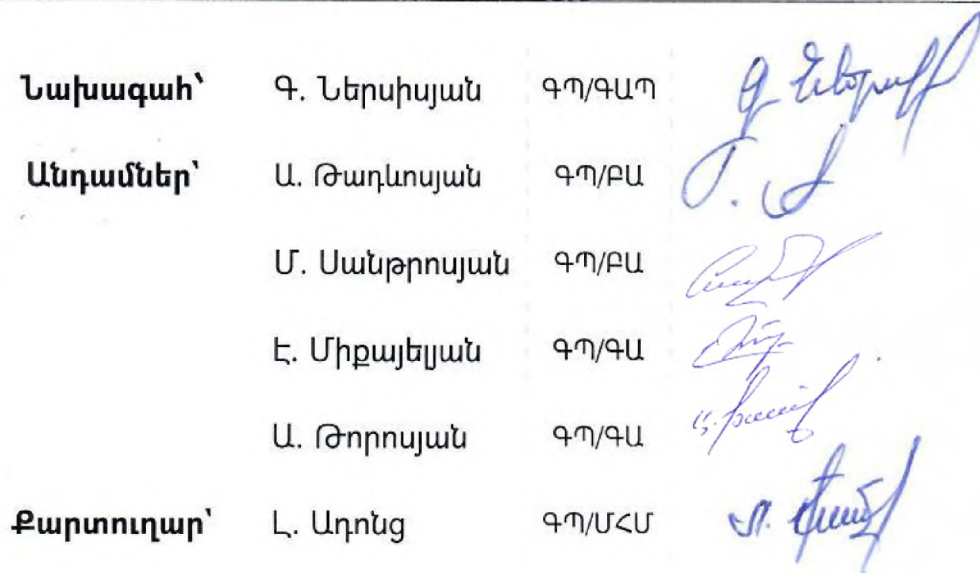 Նախագահ՝ Գ. Ներսիսյան ԳՊ/ԳԱՊ
Անդամներ՝ Ա. Թադևոսյան ԳՊ/ԲԱ
Մ. Սանթրոսյան ԳՊ/ԲԱ
Է. Միքայելյան ԳՊ/ԳԱ
Ա. Թորոսյան ԳՊ/ԳԱ
Քարտուղար՝ Լ. Ադոնց ԳՊ/ՄՀՄ